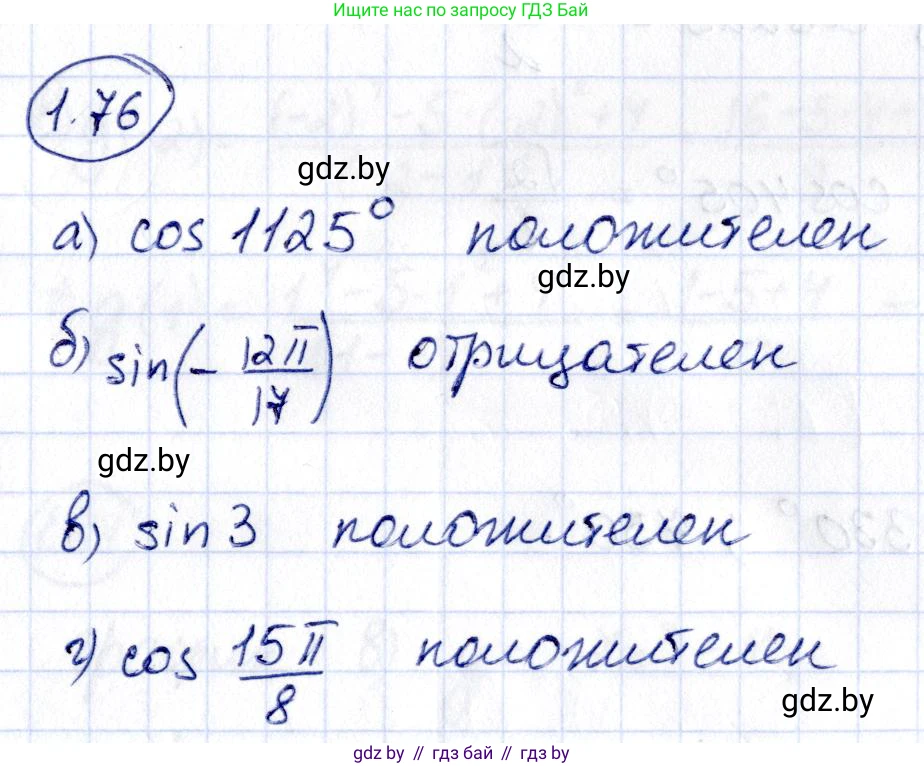 Ищите нас по запросу ГДЗ Бай
1.76
gdz.by
а) cos 1125° положителен
gdz.by
б) sin(-12π/17) отрицателен
gdz.by
в) sin 3 положителен
г) cos 15π/8 положителен
gdz.by
gdz.by // гдз бай // gdz.by